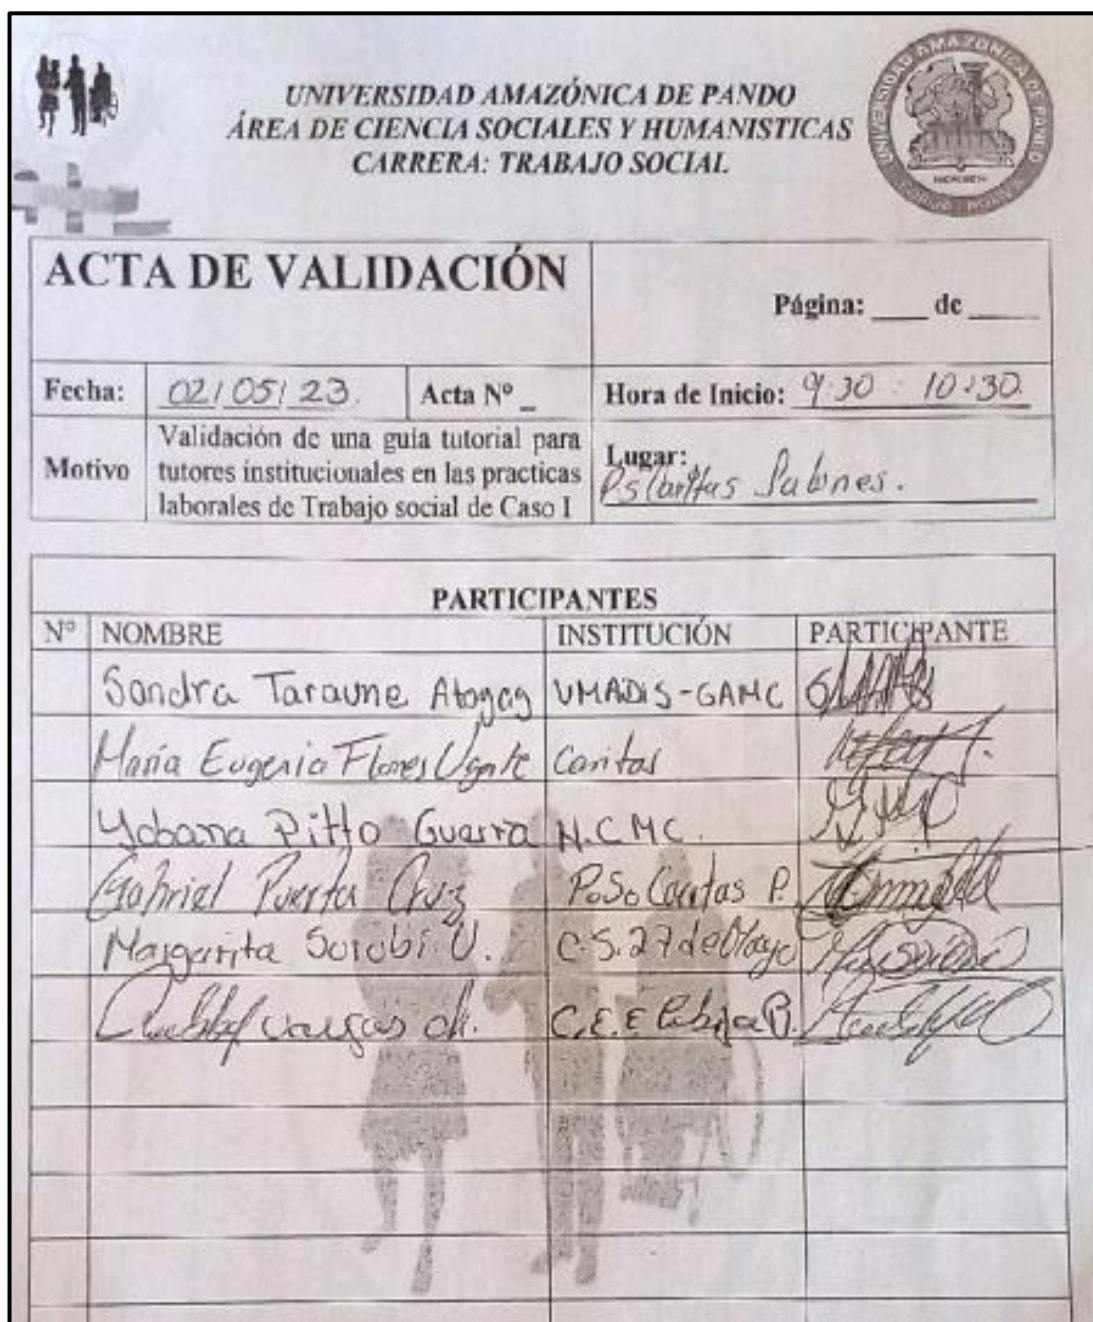 UNIVERSIDAD AMAZÓNICA DE PANDO
ÁREA DE CIENCIA SOCIALES Y HUMANISTICAS
CARRERA: TRABAJO SOCIAL
UNIVERSIDAD AMAZONICA DE PANDO
ACTA DE VALIDACIÓN
Página: ____ de ____
Fecha: 02/05/23. Acta Nº _ Hora de Inicio: 9:30 : 10:30.
Motivo
Validación de una guía tutorial para
tutores institucionales en las practicas
laborales de Trabajo social de Caso I
Lugar:
PARTICIPANTES
Nº NOMBRE INSTITUCIÓN PARTICIPANTE
Sandra Taraune UMADIS-GAMC
María Eugenia Flores Ugarte Caritas
Yobana Pitto Guerra
Gabriel Puerta Cruz Caritas P.
Margarita Sorubi U. C.S. 27 de Mayo
Vargas ch. C.E.E.